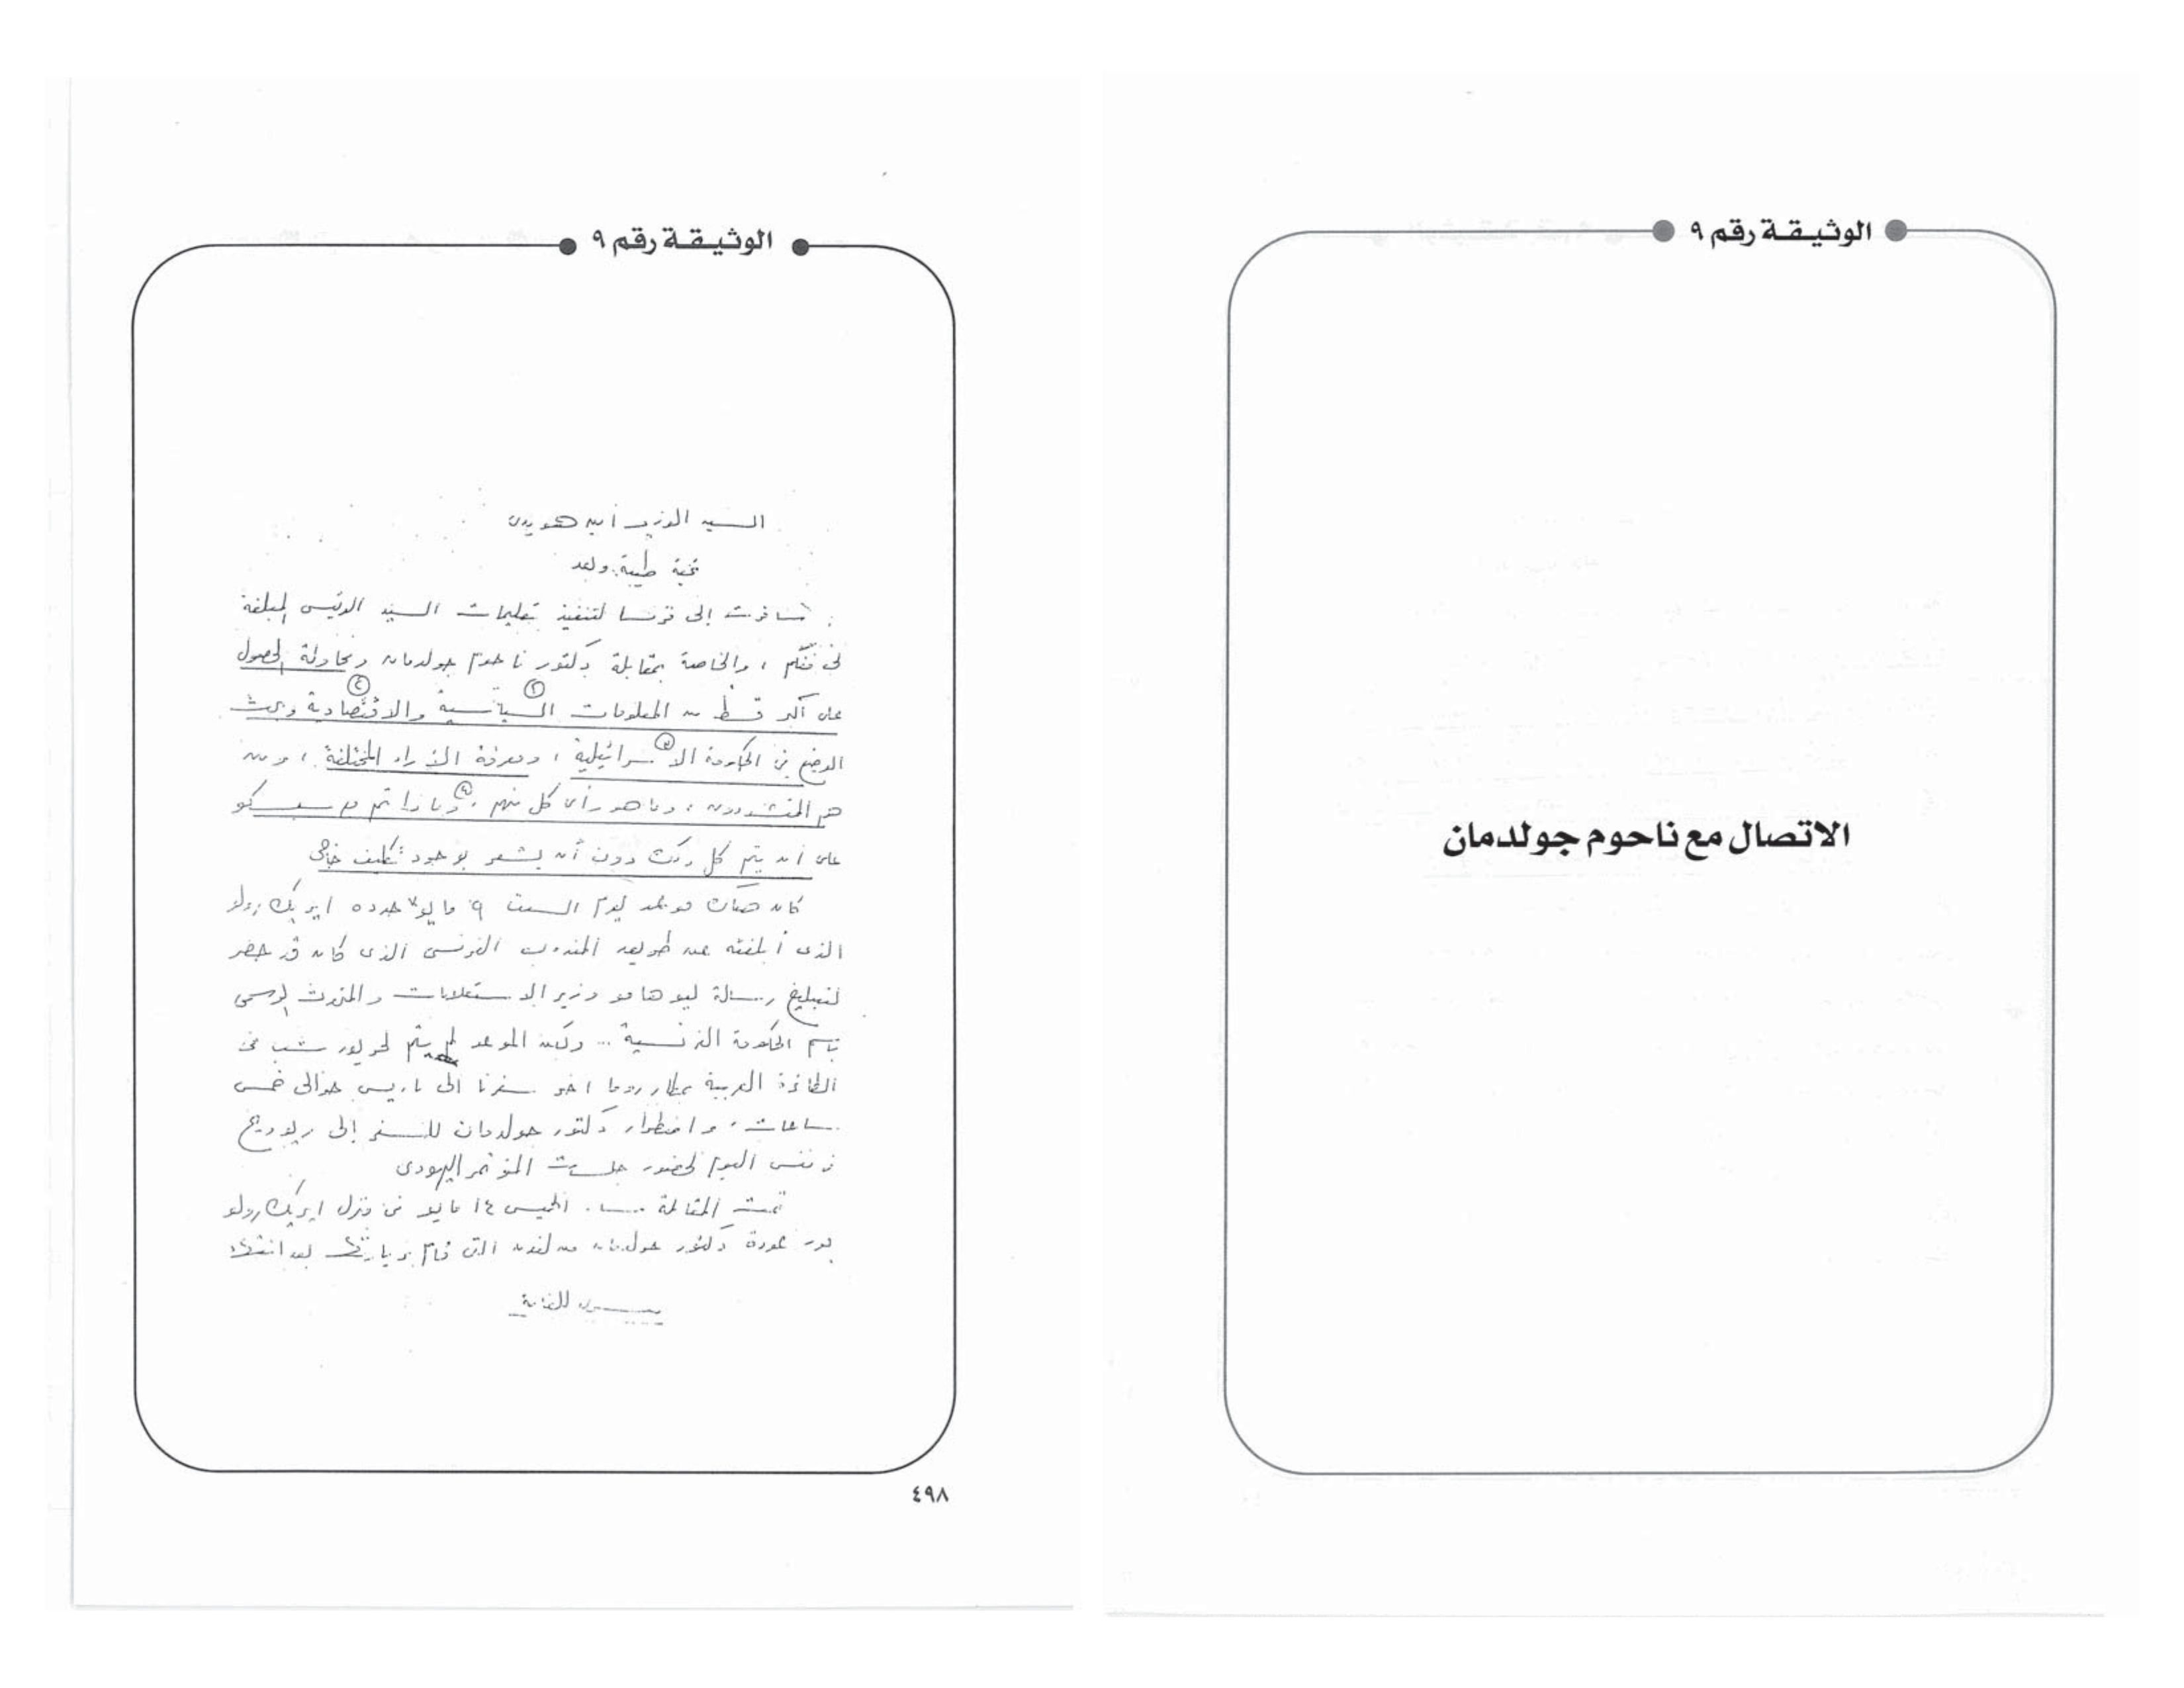 الوثيقة رقم ٩
الاتصال مع ناحوم جولدمان
الوثيقة رقم ٩
السيد الوزير أمين هويدى
تحية طيبة وبعد
سافرت إلى فرنسا لتنفيذ تعليمات السيد الرئيس المبلغة
لى منكم ، والخاصة بمقابلة دكتور ناحوم جولدمان ومحاولة الحصول
على أكبر قسط من المعلومات السياسية والاقتصادية وبحث
الوضع فى الحكومة الاسرائيلية ، ومعرفة الآراء المختلفة ، ومن
هم المتشددون ، وما هو رأى كل منهم ، وماذا تم مع
على أن يتم كل ذلك دون أن يشعر بوجود تكليف خاص
كان هناك موعد ليوم السبت ٩ مايو حدده ايريك رولو
الذى أبلغته عن طريق المندوب الفرنسى الذى كان قد حضر
لتبليغ رسالة ليو هامو وزير الاستعلامات والمتحدث الرسمى
باسم الحكومة الفرنسية ... ولكن الموعد لم يتم لحريق شب فى
الطائرة العربية بمطار روما أخر سفرنا الى باريس حوالى خمس
ساعات ، واضطرار دكتور جولدمان للسفر إلى
فى نفس اليوم لحضور جلسات المؤتمر اليهودى
تمت المقابلة مساء الخميس ١٤ مايو فى منزل ايريك رولو
بعد عودة دكتور جولدمان من لندن التى قام بزيارتها بعد انتهاء
سرى للغاية
٤٩٨